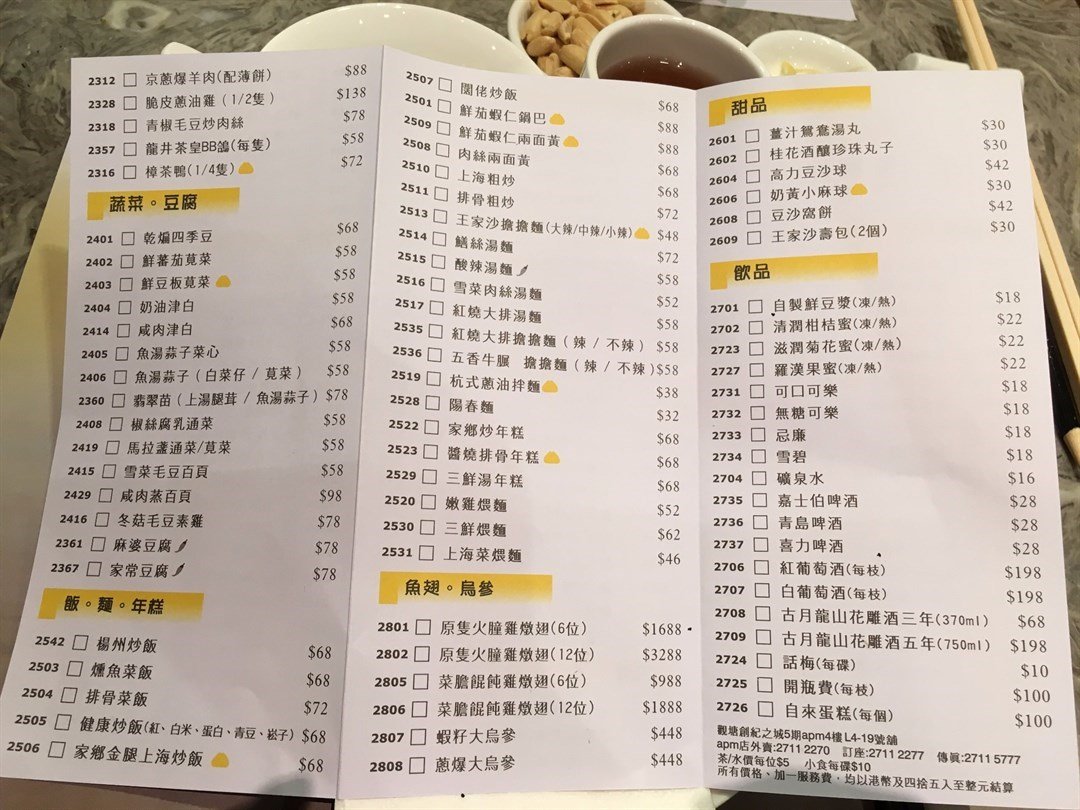 2312 京蔥爆羊肉(配薄餅) $88
2328 脆皮蔥油雞 (1/2隻) $138
2318 青椒毛豆炒肉絲 $78
2357 龍井茶皇BB鴿(每隻) $58
2316 樟茶鴨(1/4隻) $72
蔬菜。豆腐
2401 乾煸四季豆 $68
2402 鮮蕃茄莧菜 $58
2403 鮮豆板莧菜 $58
2404 奶油津白 $58
2414 咸肉津白 $68
2405 魚湯蒜子菜心 $58
2406 魚湯蒜子 (白菜仔 / 莧菜) $58
2360 翡翠苗 (上湯腿茸 / 魚湯蒜子) $78
2408 椒絲腐乳通菜 $58
2419 馬拉盞通菜/莧菜 $58
2415 雪菜毛豆百頁 $58
2429 咸肉蒸百頁 $98
2416 冬菇毛豆素雞 $78
2361 麻婆豆腐 $78
2367 家常豆腐 $78
飯。麵。年糕
2542 楊州炒飯 $68
2503 燻魚菜飯 $68
2504 排骨菜飯 $72
2505 健康炒飯(紅、白米、蛋白、青豆、崧子) $68
2506 家鄉金腿上海炒飯 $68
2507 闊佬炒飯 $68
2501 鮮茄蝦仁鍋巴 $88
2509 鮮茄蝦仁兩面黃 $88
2508 肉絲兩面黃 $68
2510 上海粗炒 $68
2511 排骨粗炒 $72
2513 王家沙擔擔麵(大辣/中辣/小辣) $48
2514 鱔絲湯麵 $72
2515 酸辣湯麵 $58
2516 雪菜肉絲湯麵 $52
2517 紅燒大排湯麵 $58
2535 紅燒大排擔擔麵 (辣 / 不辣) $58
2536 五香牛𦟌 擔擔麵 (辣 / 不辣) $58
2519 杭式蔥油拌麵 $38
2528 陽春麵 $32
2522 家鄉炒年糕 $68
2523 醬燒排骨年糕 $68
2529 三鮮湯年糕 $68
2520 嫩雞煨麵 $52
2530 三鮮煨麵 $62
2531 上海菜煨麵 $46
魚翅。烏參
2801 原隻火膧雞燉翅(6位) $1688
2802 原隻火膧雞燉翅(12位) $3288
2805 菜膽餛飩雞燉翅(6位) $988
2806 菜膽餛飩雞燉翅(12位) $1888
2807 蝦籽大烏參 $448
2808 蔥爆大烏參 $448
甜品
2601 薑汁鴛鴦湯丸 $30
2602 桂花酒釀珍珠丸子 $30
2604 高力豆沙球 $42
2606 奶黃小麻球 $30
2608 豆沙窩餅 $42
2609 王家沙壽包(2個) $30
飲品
2701 自製鮮豆漿(凍/熱) $18
2702 清潤柑桔蜜(凍/熱) $22
2723 滋潤菊花蜜(凍/熱) $22
2727 羅漢果蜜(凍/熱) $22
2731 可口可樂 $18
2732 無糖可樂 $18
2733 忌廉 $18
2734 雪碧 $18
2704 礦泉水 $16
2735 嘉士伯啤酒 $28
2736 青島啤酒 $28
2737 喜力啤酒 $28
2706 紅葡萄酒(每枝) $198
2707 白葡萄酒(每枝) $198
2708 古月龍山花雕酒三年(370ml) $68
2709 古月龍山花雕酒五年(750ml) $198
2724 話梅(每碟) $10
2725 開瓶費(每枝) $100
2726 自來蛋糕(每個) $100
觀塘創紀之城5期apm4樓 L4-19號舖
apm店外賣:2711 2270 訂座:2711 2277 傳眞:2711 5777
茶/水價每位$5 小食每碟$10
所有價格、加一服務費，均以港幣及四捨五入至整元結算